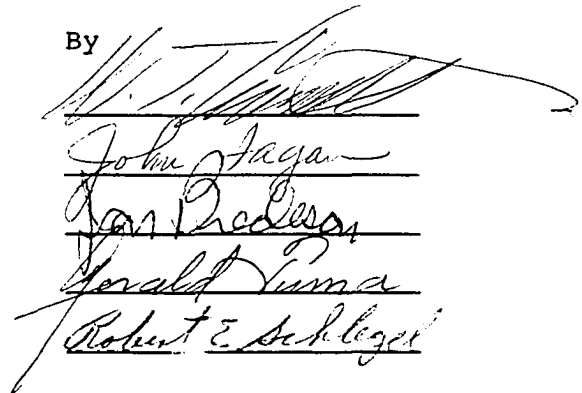 By
John Fagan
Jon Bredeson
Gerald Tuma
Robert E Schlegel